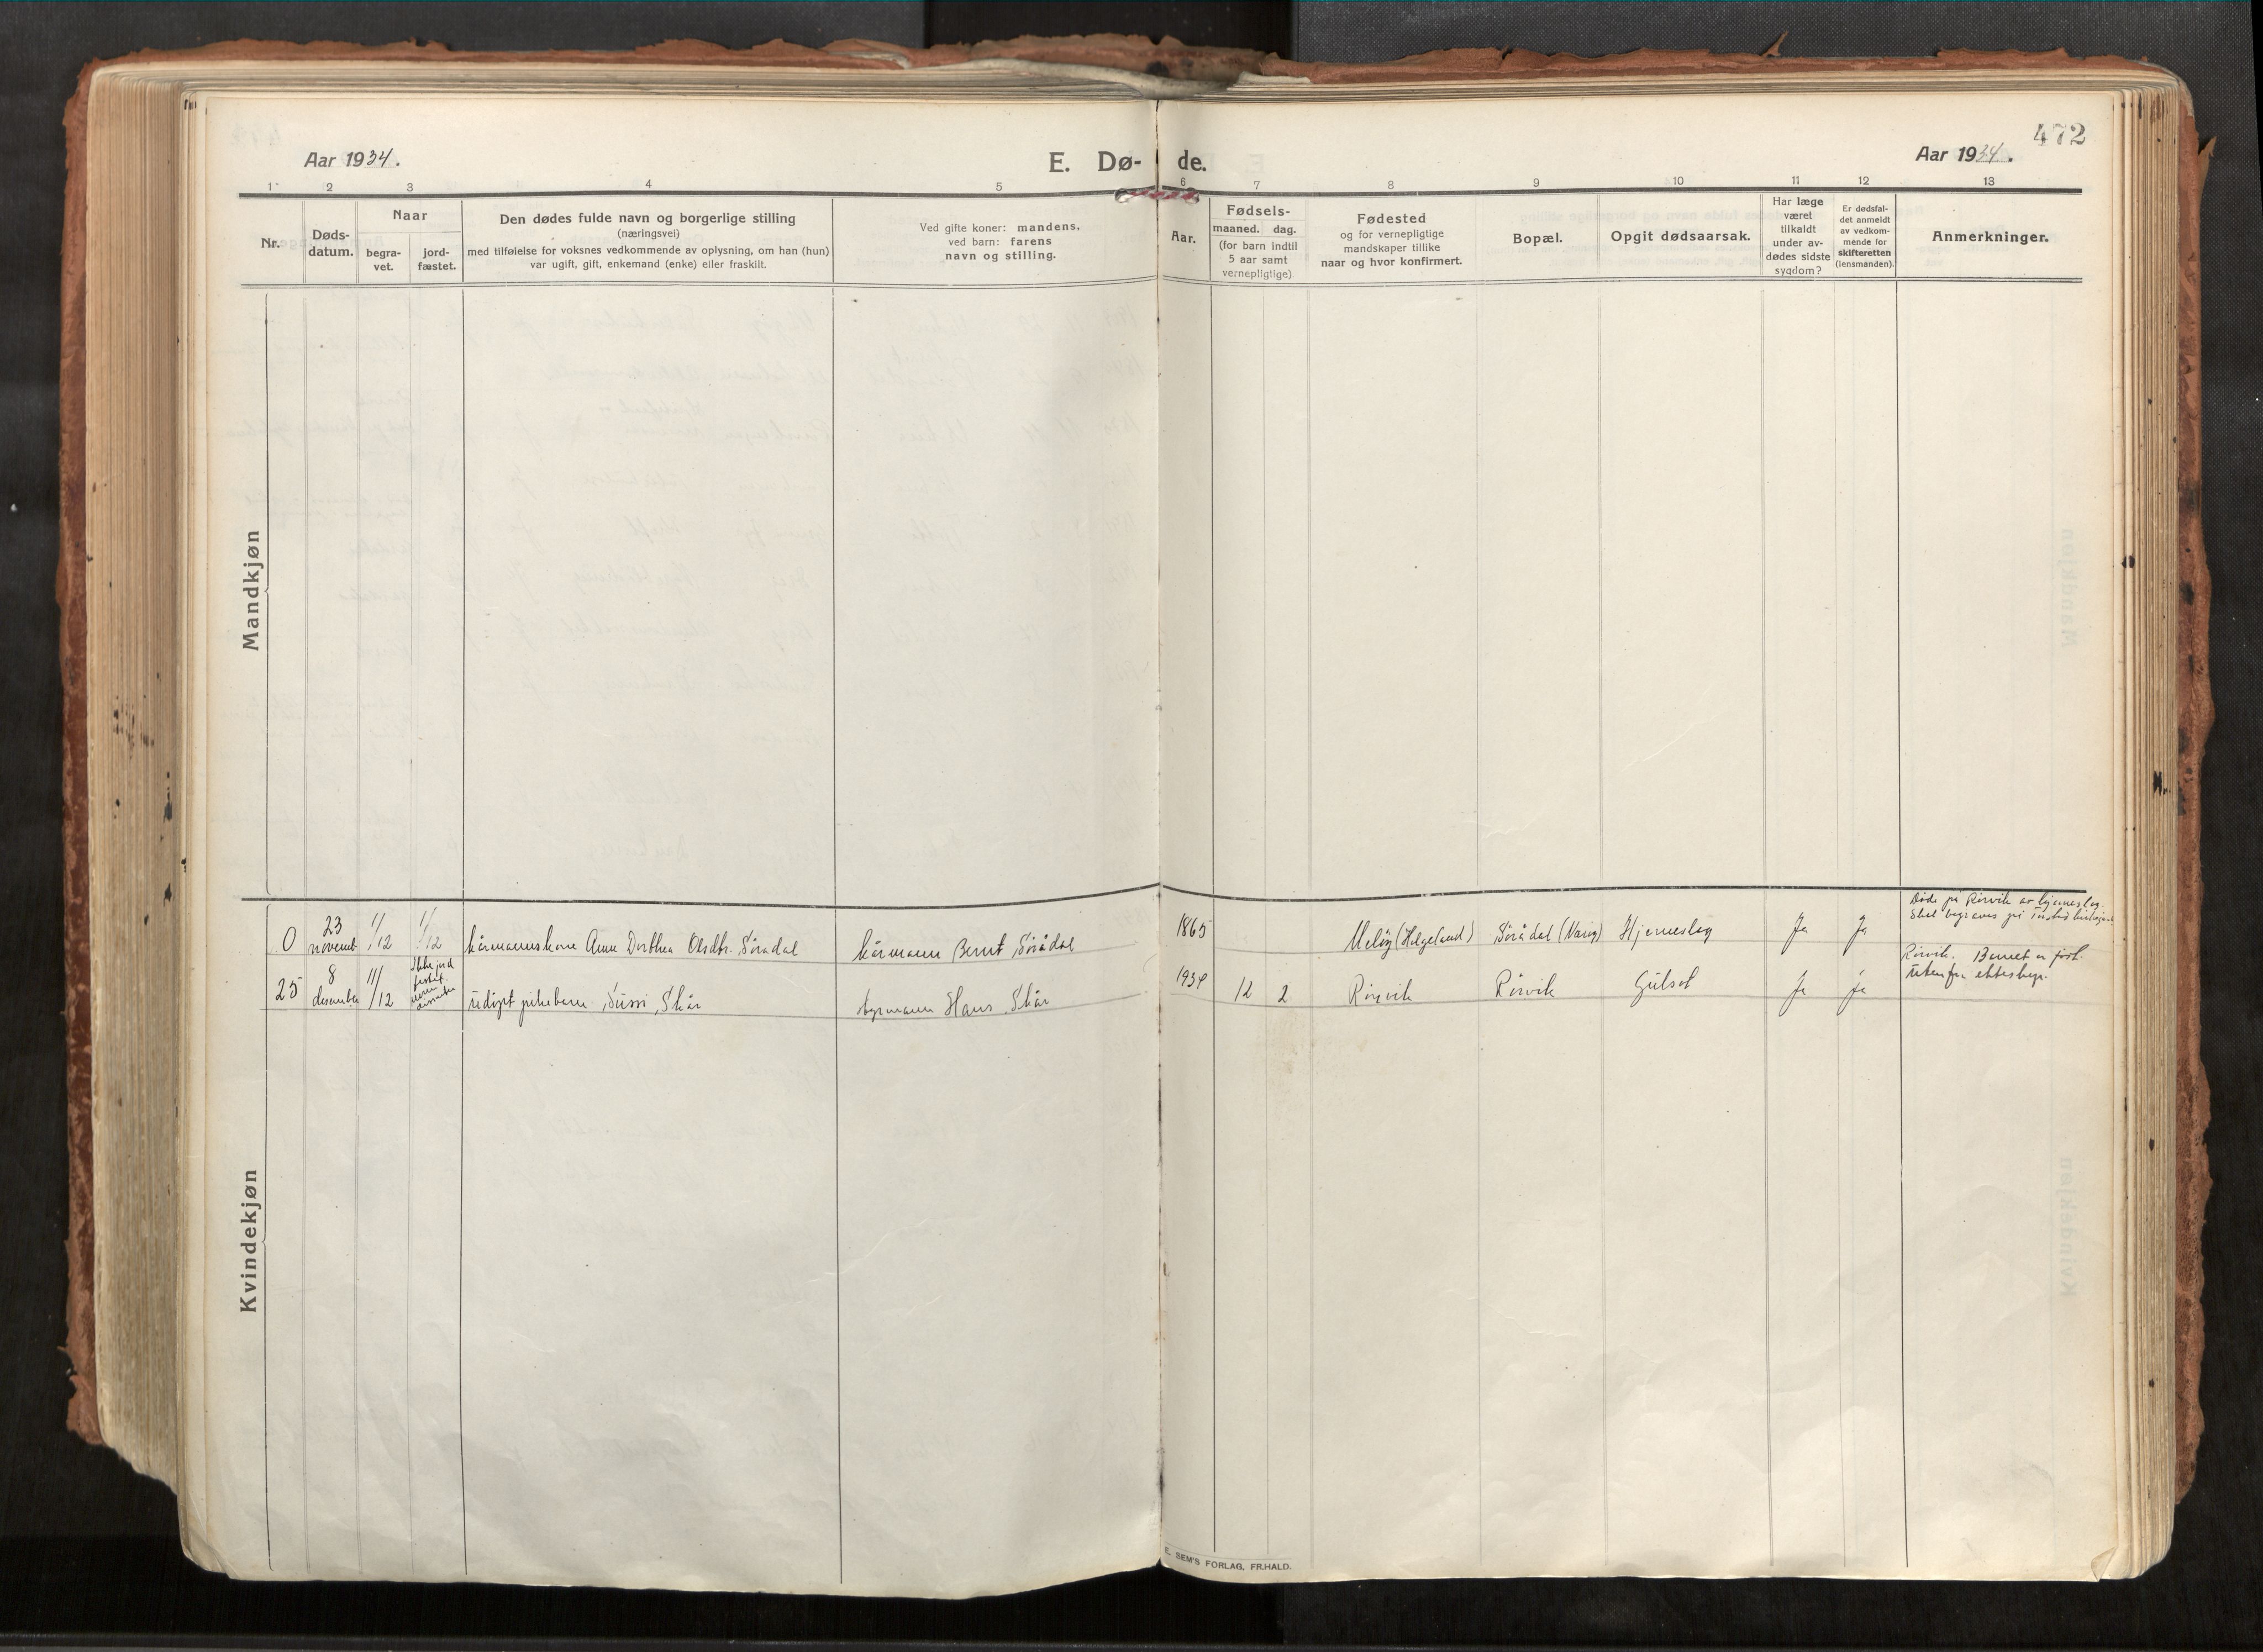 472
Aar 1934.
E. Dø- de.
Aar 1934.
1 2 3 4 5 6 7 8 9 10 11 12 13
Nr.
Døds-
datum.
Naar
begra-
vet.
jord-
fæstet.
Den dødes fulde navn og borgerlige stilling
(næringsvei)
med tilføielse for voksnes vedkommende av oplysning, om han (hun)
var ugift, gift, enkemand (enke) eller fraskilt.
Ved gifte koner: mandens,
ved barn: farens
navn og stilling.
Aar.
Fødsels-
maaned. dag.
(for barn indtil
5 aar samt
vernepligtige)
Fødested
og for vernepligtige
mandskaper tillike
naar og hvor konfirmert.
Bopæl.
Opgit dødsaarsak.
Har læge
været
tilkaldt
under av-
dødes sidste
sygdom?
Er dødsfal-
det anmeldt
av vedkom-
mende for
skifteretten
(lensmanden).
Anmerkninger.
Mandkjøn
0 23 novemb. 1/12 1/12 kårmannskone Anna Dorthea Olsdtr. Sørådal kårmann Bernt Sørådal 1865 Meløy (Helgeland) Sørådal (Nærøy) Hjerneslag Ja Ja
Døde på Rørvik av hjerneslag.
Skal begraves på
25 8 desember 11/12 Ikke jord festet udøpt pikebarn Sussi Skår Hans Skår 1934 12 2 Rørvik Rørvik Gulsot Ja Ja
Rørvik. Barnet er født
utenfor ekteskap.
Kvindekjøn
E. SEM'S FORLAG, FR.HALD.